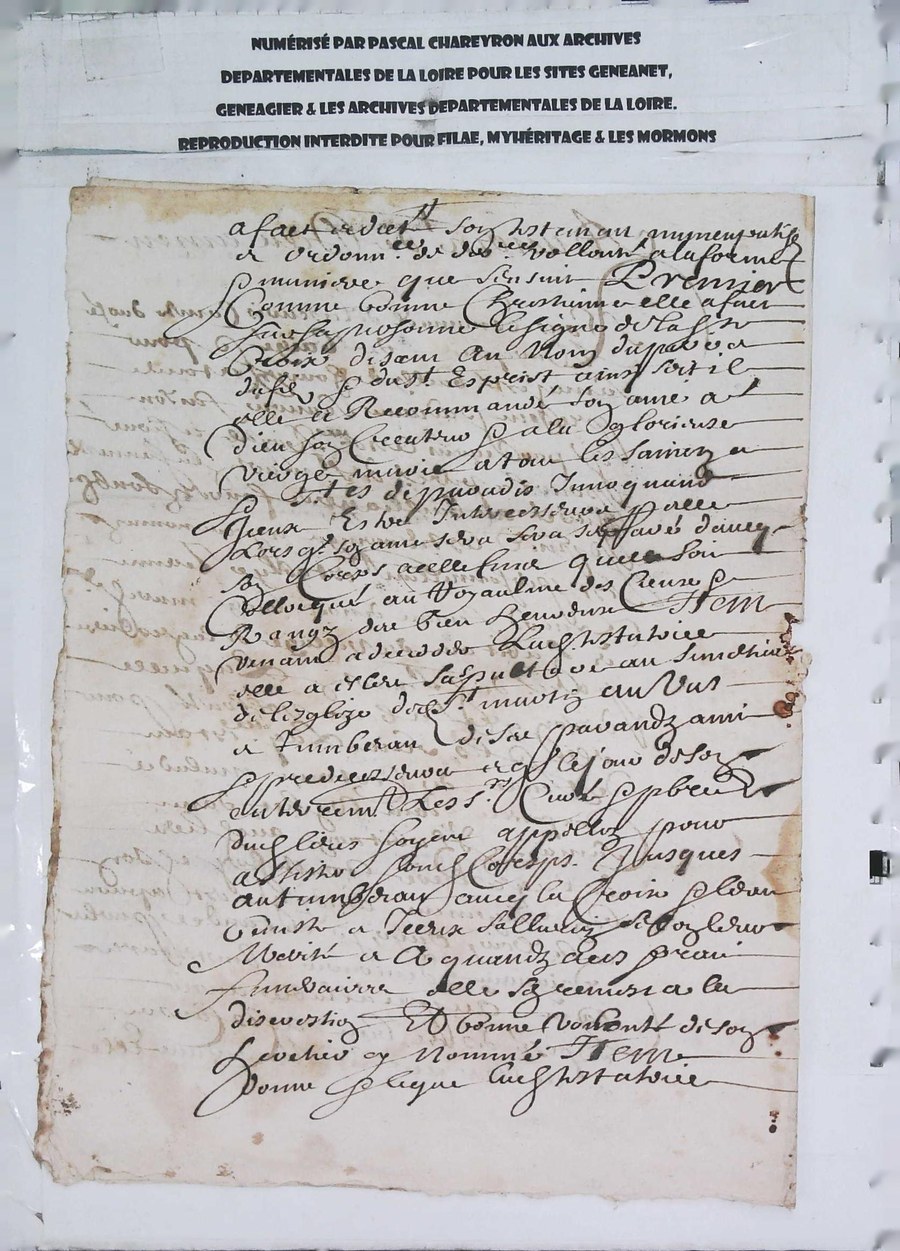 NUMÉRISÉ PAR PASCAL CHAREYRON AUX ARCHIVES
DEPARTEMENTALES DE LA LOIRE POUR LES SITES GENEANET,
GENEAGIER & LES ARCHIVES DEPARTEMENTALES DE LA LOIRE.
REPRODUCTION INTERDITE POUR FILAE, MYHÉRITAGE & LES MORMONS
a faict son testament nuncupatif
et ordonnce de vollonté a la forme
maniere que sensuit Premier
Comme bonne Chrestienne elle a faict
sur sa personne le signe de la Ste
Croix disant Au Nom du pere
du filz du St Esprist ainsi soit il
elle a Recommandé son ame a
dieu son Createur a la glorieuse
vierge marie a tou les sainctz
Stes de paradis Invoquand
Iceux Estre Intercesseurs elle
Lors q son ame sera separé dauec
son Corps a celle fin quelle soit
Collocqué au Royaulme des Cieux
Rangz des bien heureux Item
venant a deceder Lad testatrice
elle a esleu sa sepulture au simethiere
de lesglize de St martin
et Tumbeau de ses parandz ami
predecesseur le jour de son
enterremt Les Srs Curé pbre
dud lieu soyent appellez pour
assister sond Corps Jusques
au tumbeau auec la Croix leau
benite
Merité et A quandz aux frai
funeraire elle sen remest a la
discrestion Et bonne vollonté de son
heretier cy Nommé Item
donne legue lad testatrice